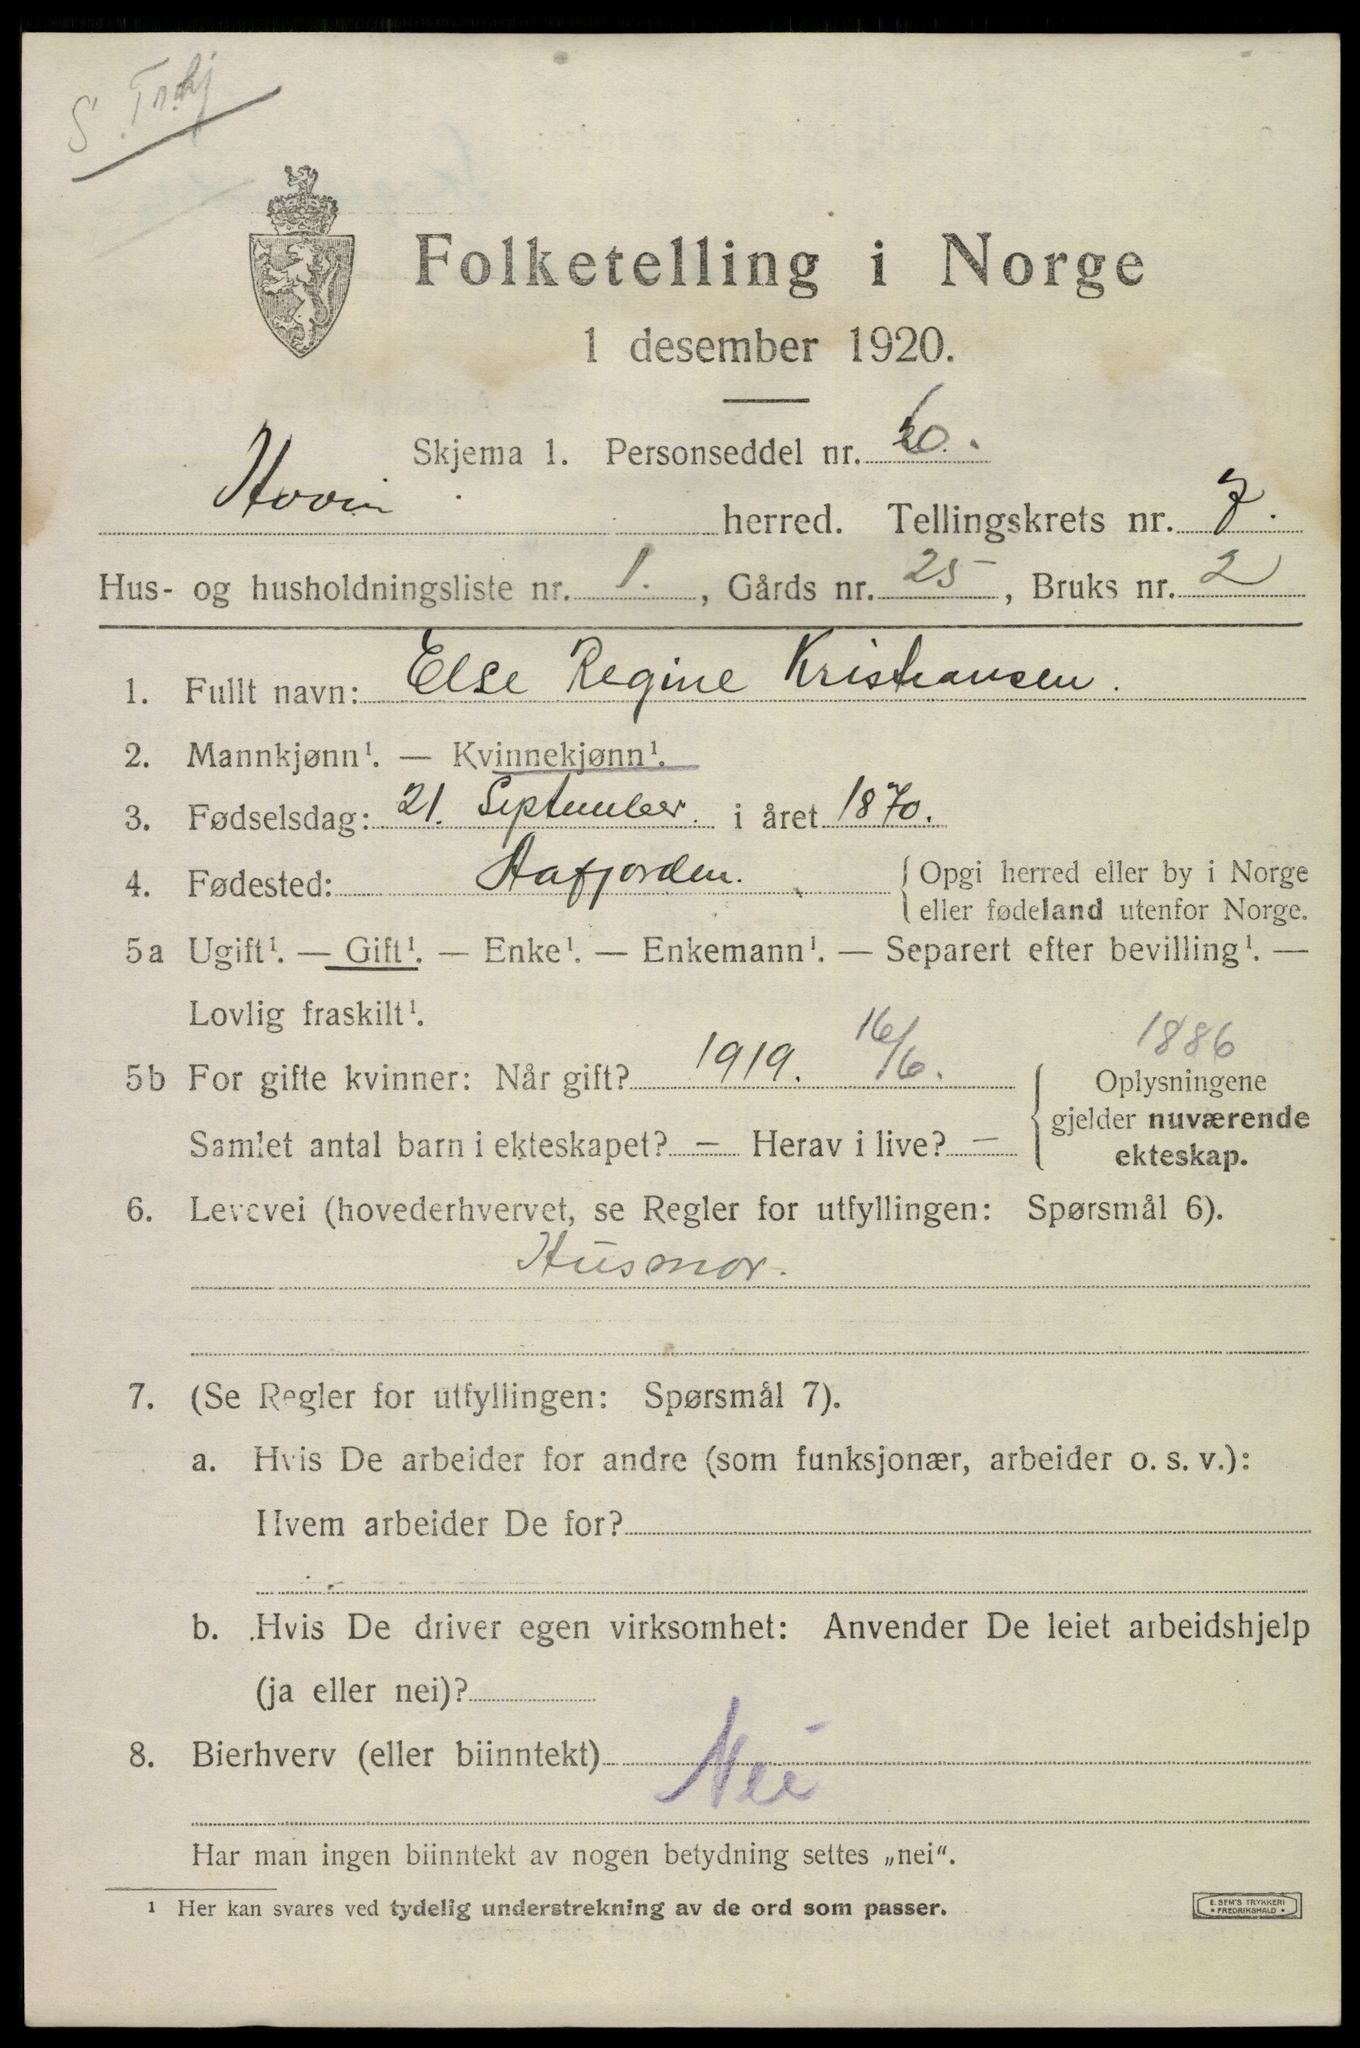 S. Trhj
Folketelling i Norge
1 desember 1920.
Skjema 1. Personseddel nr. 6.
Hovin herred. Tellingskrets nr. 7.
Hus- og husholdningsliste nr. 1., Gårds nr. 25, Bruks nr. 2
1. Fullt navn: Else Regine Kristiansen.
2. Mannkjønn¹. — Kvinnekjønn¹.
3. Fødselsdag: 21. September. i året 1870.
4. Fødested: Aafjorden. Opgi herred eller by i Norge
eller fødeland utenfor Norge.
5a Ugift¹. — Gift¹. — Enke¹. — Enkemann¹. — Separert efter bevilling¹. —
Lovlig fraskilt¹.
1886
5b For gifte kvinner: Når gift? 1919. 16/6. Oplysningene
gjelder nuværende
Samlet antal barn i ekteskapet? — Herav i live? —
ekteskap.
6. Levevei (hovederhvervet, se Regler for utfyllingen: Spørsmål 6).
Husmor.
7. (Se Regler for utfyllingen: Spørsmål 7).
a. Hvis De arbeider for andre (som funksjonær, arbeider o. s. v.):
Hvem arbeider De for?
b. Hvis De driver egen virksomhet: Anvender De leiet arbeidshjelp
(ja eller nei)?
8. Bierhverv (eller biinntekt) Nei
Har man ingen biinntekt av nogen betydning settes „nei“.
¹ Her kan svares ved tydelig understrekning av de ord som passer.
E. SEM'S TRYKKERI
FREDRIKSHALD